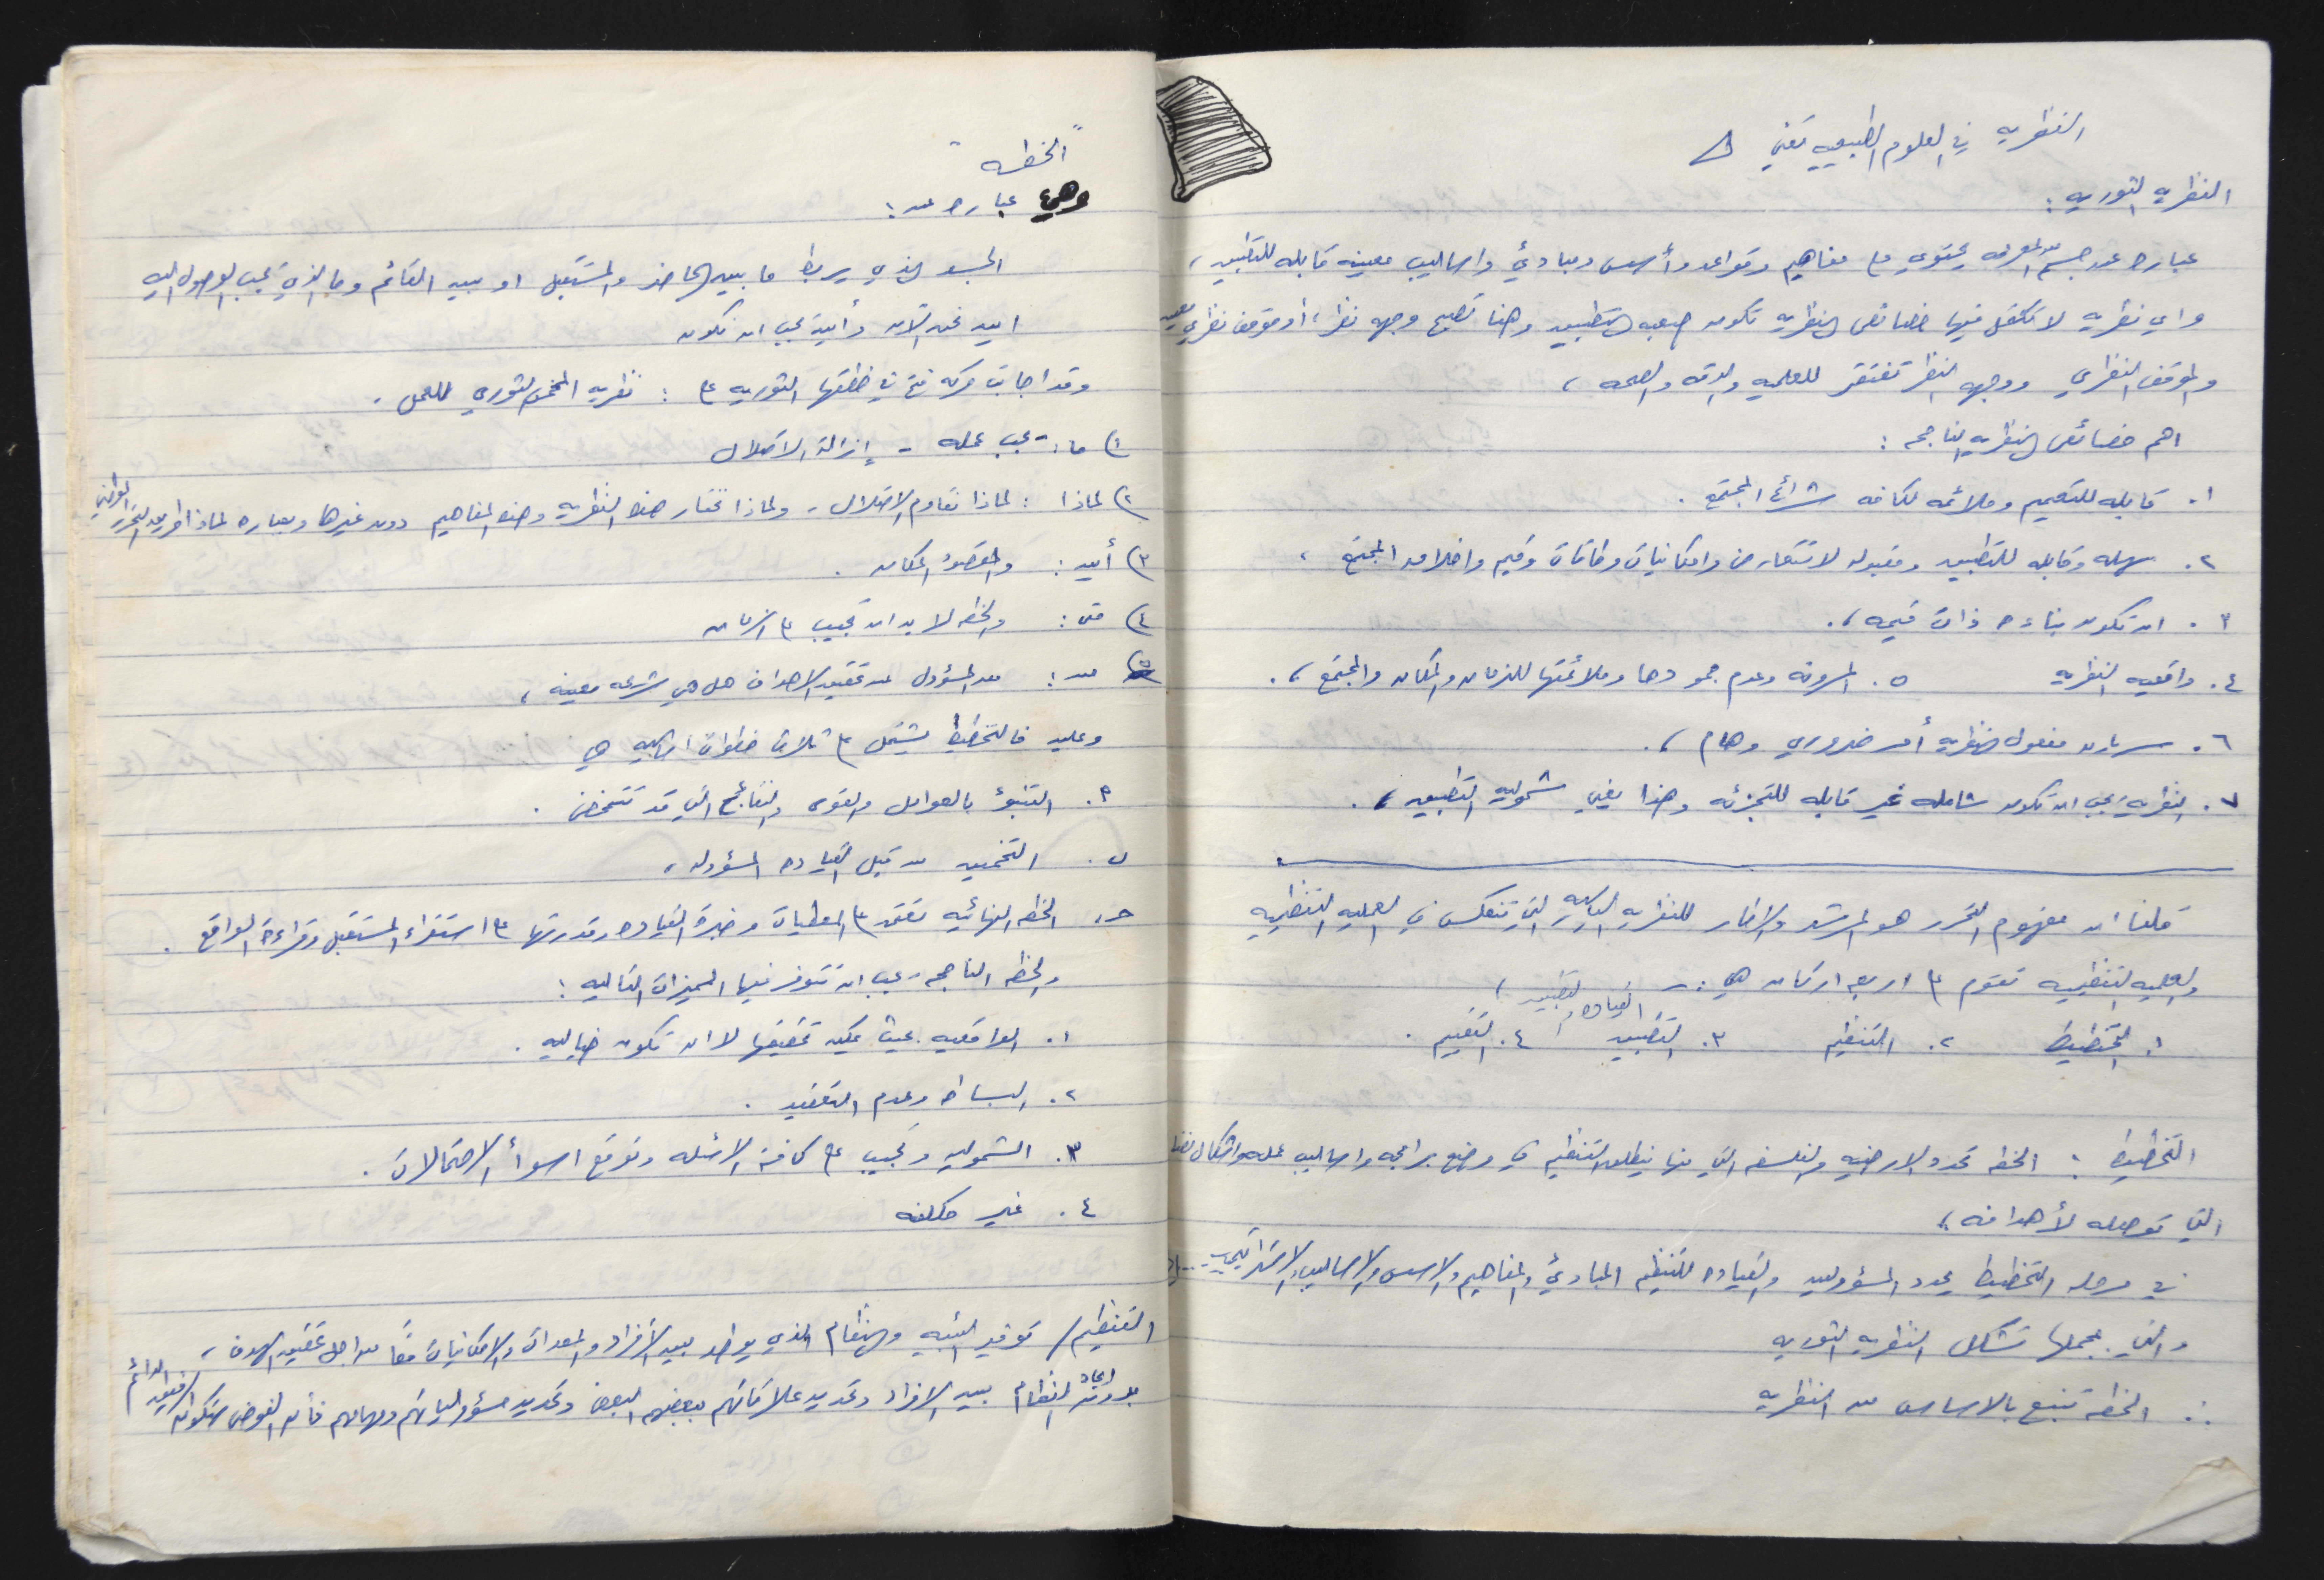 النظريه في العلوم الطبيعيه تعني
النظريه الثوريه :
عباره عن جسم من المعرفه يحتوي على مفاهيم وقواعد وأسس ومبادئ واساليب معينه قابله للتطبيق ،
واي نظريه لا تكتمل فيها خصائص النظريه تكون صعبه التطبيق وهنا تصبح وجهه نظر ، أو موقف نظري معين
والموقف النظري ووجهه النظر تفتقر للعلميه والدقه والصحه ،
اهم خصائص النظريه الناجحه :
١. قابله للتعميم وملائمه لكافه شرائح المجتمع .
٢. سهله وقابله للتطبيق ومقبوله لا تتعارض وامكانيات وطاقات وقيم واخلاق المجتمع ،
٣. ان تكون بناءه ذات قيمه ، .
٤. واقعيه النظريه ٥. المرونه وعدم جمودها وملائمتها للزمان والمكان والمجتمع ، .
٦. سريان مفعول النظريه أمر ضروري وهام ، .
٧. النظريه يجب ان تكون شامله غير قابله للتجزئه وهذا يعني شموليه التطبيق ، .
قلنا ان مفهوم التحرر هو المرشد والاطار للنظريه السياسيه التي تنعكس في العمليه التنظيميه
والعمليه التنظيميه تقوم على اربعه اركان هي :-
القياده والتطبيق ،
١. التخطيط ٢. التنظيم ٣. التطبيق ٤. التقييم .
التخطيط : الخطه تحدد الارضيه والفلسفه التي منها ينطلق التنظيم في وضع برامجه واساليب عمله واشكال
التي توصله لأهدافه ،
في مرحله التخطيط يحدد المسؤولين والقياده للتنظيم المبادئ والمفاهيم والاسس والاساليب والاستراتيجيات
والتي بمجملها تشكل النظريه الثوريه
∴ الخطه تنبع بالاساس من النظريه
"الخطه"
وهي عباره عن :
الجسر الذي يربط ما بين الحاضر والمستقبل او بين القائم وما الذي يجب الوصول اليه
اين نحن الآن وأين يجب ان نكون
وقد اجابت حركه فتح في خطتها الثوريه على : نظريه المخمس الثوري للعمل .
١) ما : يجب عمله - إزالة الاحتلال
٢) لماذا : لماذا نقاوم الاحتلال - ولماذا نختار هذه النظريه وهذه المفاهيم دون غيرها وبعباره لماذا افرايد التحرر الوطني
٣) أين : والمقصود المكان .
٤) متى : والخطه لا بد ان تجيب على الزمان
٥) من : من المسؤول عن تحقيق الاهداف هل هي شريحه معينه ،
وعليه فالتخطيط يشتمل على ثلاث خطوات اساسيه هي
٩. التنبؤ بالعوامل والقوى والنتائج التي قد تتمخض .
ب. التخمين من قبل القياده المسؤوله ،
ج. الخطه النهائيه تعتمد على المعطيات وخبرة القياده وقدرتها على استقراء المستقبل وقراءة الواقع .
والخطه الناجحه يجب ان تتوفر فيها المميزات التاليه :
١. الواقعيه بحيث يمكن تحقيقها لا ان تكون خياليه .
٢. البساطه وعدم التعقيد .
٣. الشموليه وتجيب على كافة الاسئله وتوقع اسوأ الاحتمالات .
٤. غير مكلفه
التنظيم / توفير البنيه والنظام الذي يوازن بين الأفراد والمعدات والامكانيات معاً من اجل تحقيق الهدف ،
بدون ايجاد النظام بين الافراد وتحديد علاقاتهم ببعضهم البعض وتحديد مسؤولياتهم ومهامهم فأن الفوضى ستكون الرفيق الدائم